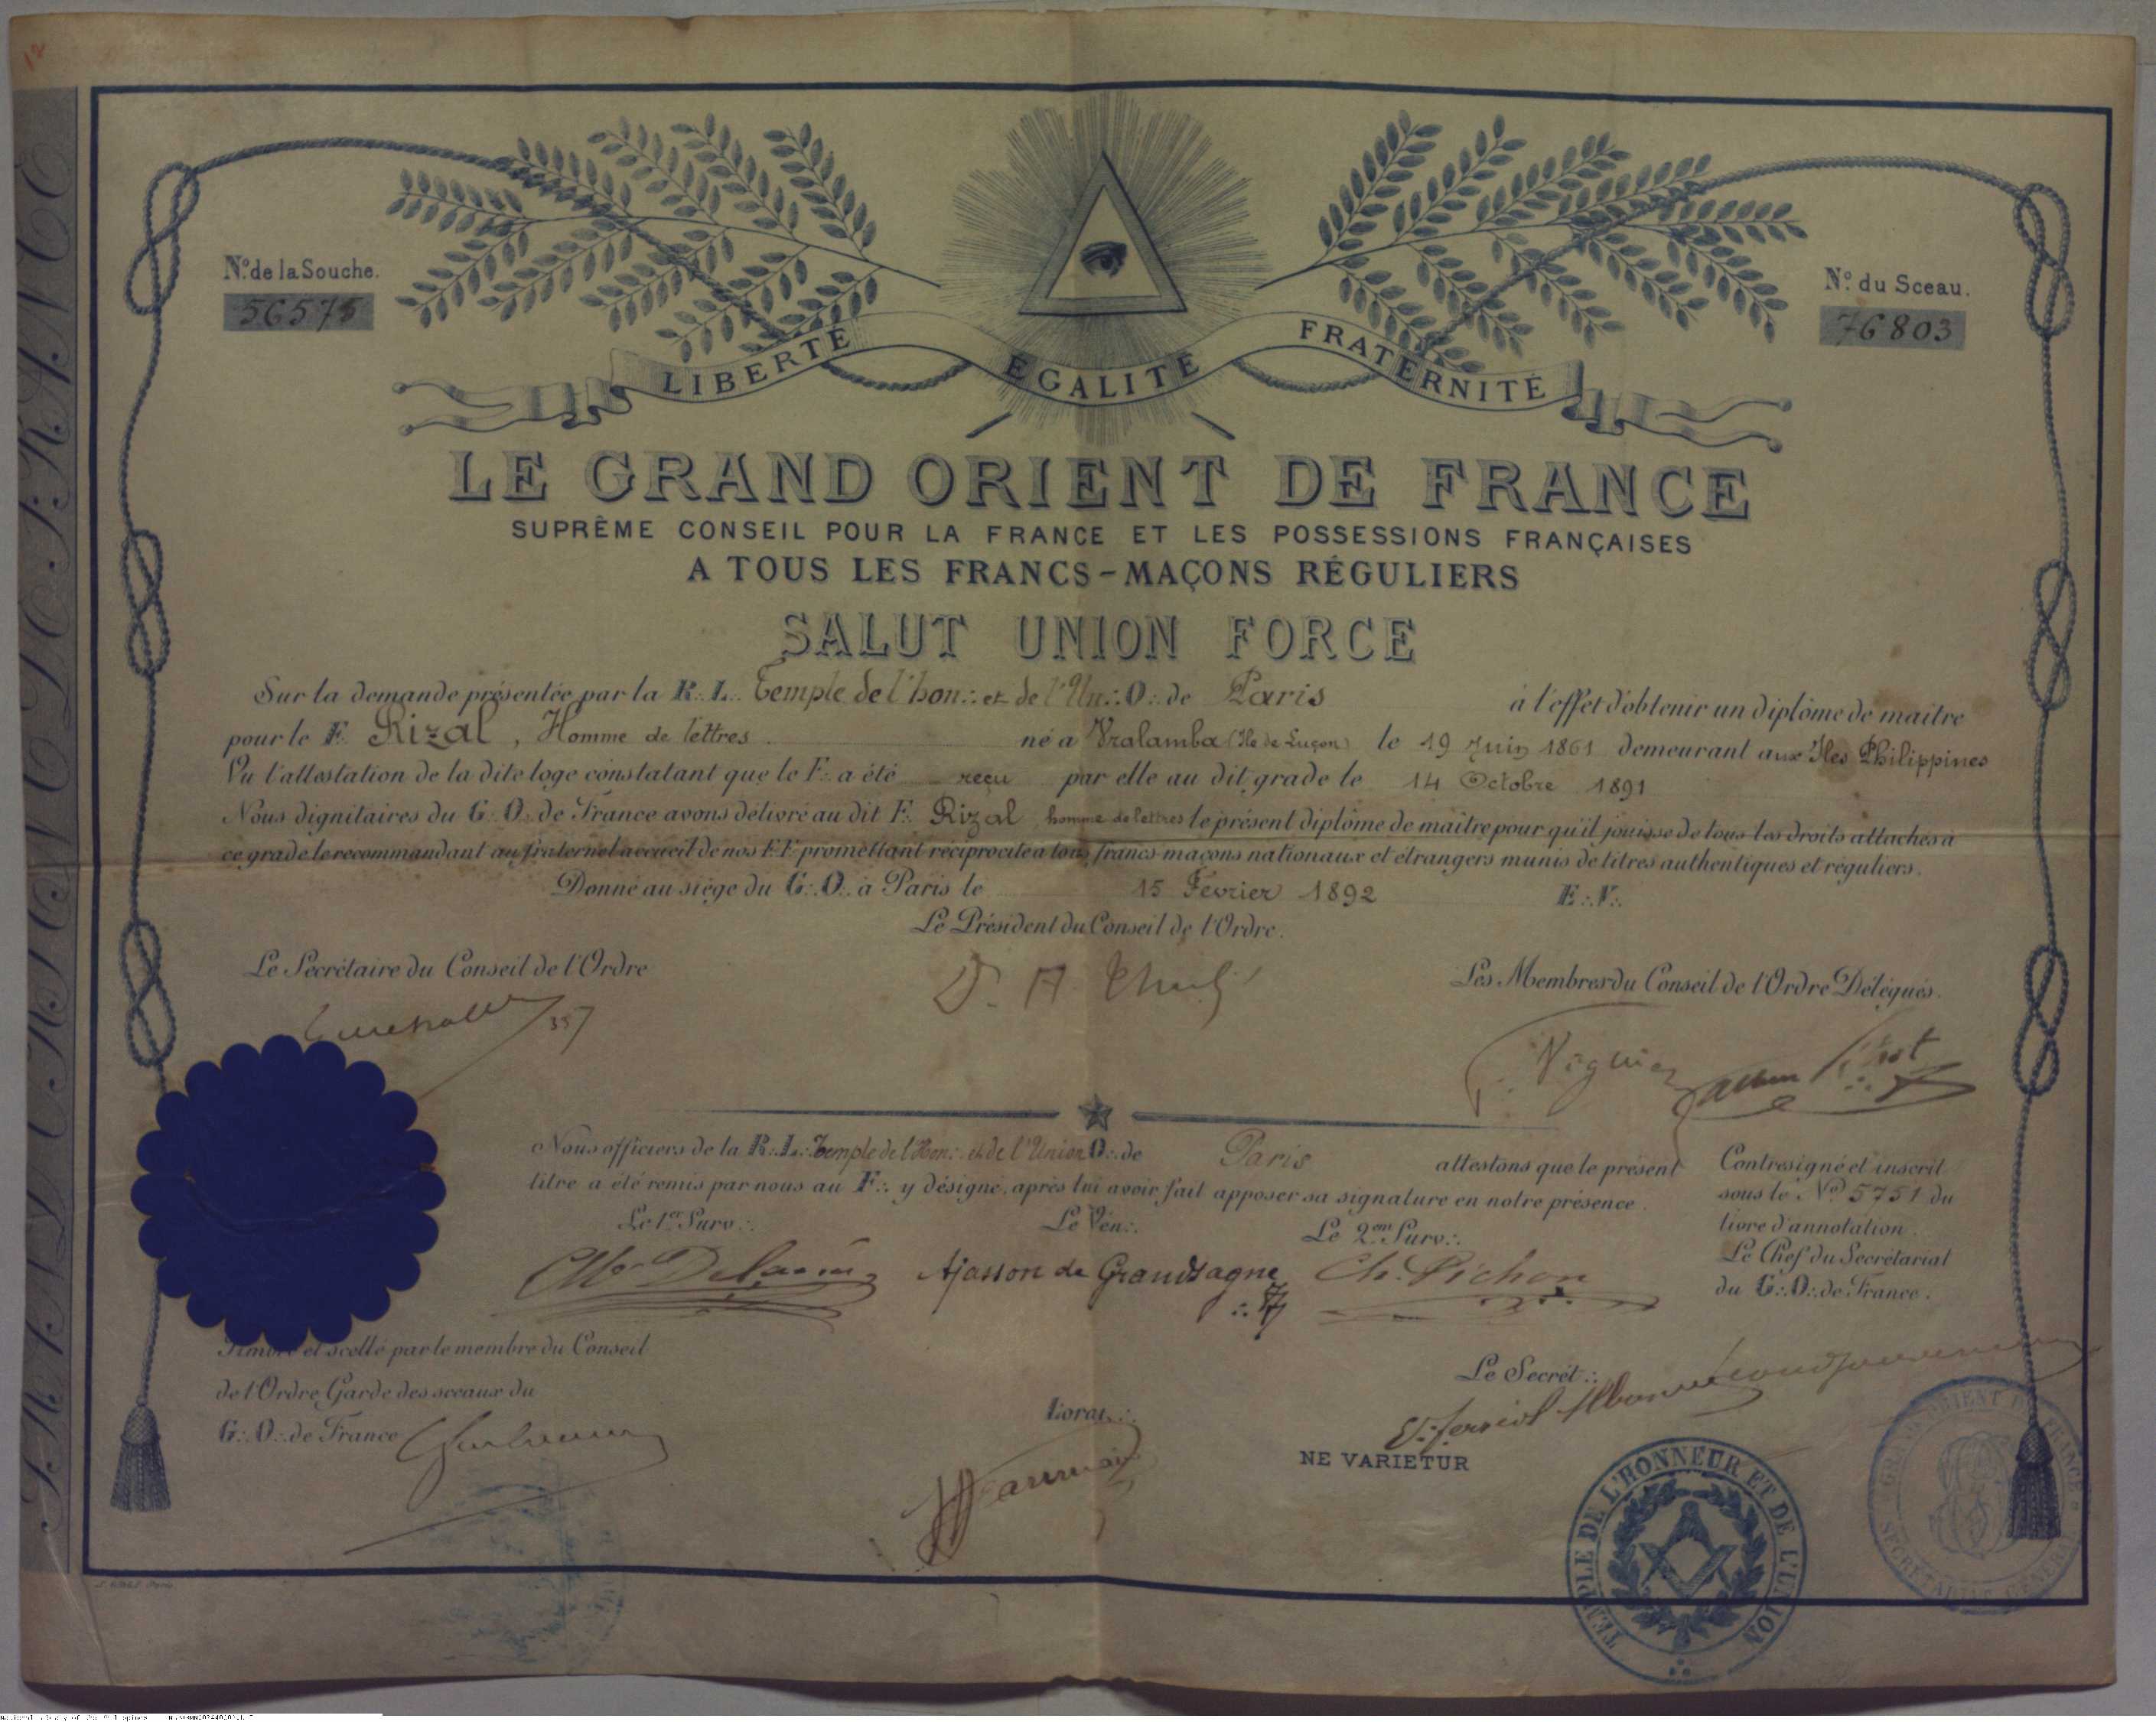 12
Nº de la Souche.
56575
Nº du Sceau.
76803
LIBERTÉ ÉGALITÉ FRATERNITÉ
LE GRAND ORIENT DE FRANCE
SUPRÊME CONSEIL POUR LA FRANCE ET LES POSSESSIONS FRANÇAISES
A TOUS LES FRANCS-MAÇONS RÉGULIERS
SALUT UNION FORCE
Sur la demande présentée par la R∴ L∴ Temple de l'hon∴ et de l'Un∴ O∴ de Paris à l'effet d'obtenir un diplôme de maître
pour le F∴ Rizal, Homme de lettres né à Vralamba (Ile de Luçon) le 19 Juin 1861 demeurant aux Iles Philippines
Vu l'attestation de la dite loge constatant que le F∴ a été reçu par elle au dit grade le 14 Octobre 1891
Nous dignitaires du G∴ O∴ de France avons délivré au dit F∴ Rizal homme de lettres le présent diplôme de maître pour qu'il jouisse de tous les droits attachés à
ce grade le recommandant au fraternel accueil de nos FF∴ promettant réciprocité à tous francs-maçons nationaux et étrangers munis de titres authentiques et réguliers.
Donné au siège du G∴ O∴ à Paris le 15 Février 1892 E∴ V∴
Le Président du Conseil de l'Ordre.
Le Secrétaire du Conseil de l'Ordre
Les Membres du Conseil de l'Ordre Délégués.
Nous officiers de la R∴ L∴ Temple de l'Hon∴ et de l'Union O∴ de Paris attestons que le présent
titre a été remis par nous au F∴ y désigné, après lui avoir fait apposer sa signature en notre présence.
Le 1er Surv∴ Le Vén∴ Le 2em Surv∴
Ajasson de Grandsagne
Ch. Pichon
Contresigné et inscrit
sous le Nº 5751 du
livre d'annotation
Le Chef du Secrétariat
du G∴ O∴ de France.
Timbré et scellé par le membre du Conseil
de l'Ordre Garde des sceaux du
G∴ O∴ de France
L'orat∴
Le Secrét∴
NE VARIETUR
TEMPLE DE L'HONNEUR ET DE L'UNION
GRAND ORIENT DE FRANCE
SECRÉTARIAT GÉNÉRAL